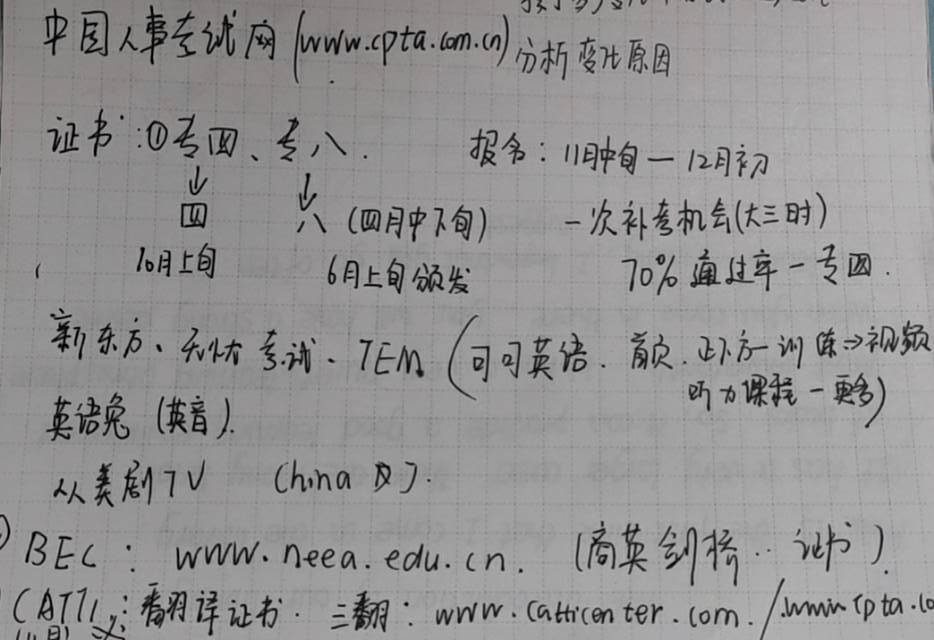 中国人事考试网 (www.cpta.com.cn) 分析变化原因
证书:①专四、专八. 报名:11月中旬一12月初
↓ ↓
四 八 (四月中下旬) 一次补考机会(大三时)
10月上旬 6月上旬颁发 70% 通过率一专四.
新东方、无忧考试、TEM (可可英语、首页、正下方一训练⇒视频
听力课程一更多)
英语兔 (英音).
人人美剧TV China
BEC: www.neea.edu.cn. (商英剑桥.. 证书)
CATTI: 翻译证书. 三翻: www.catticenter.com. / www.cpta.co